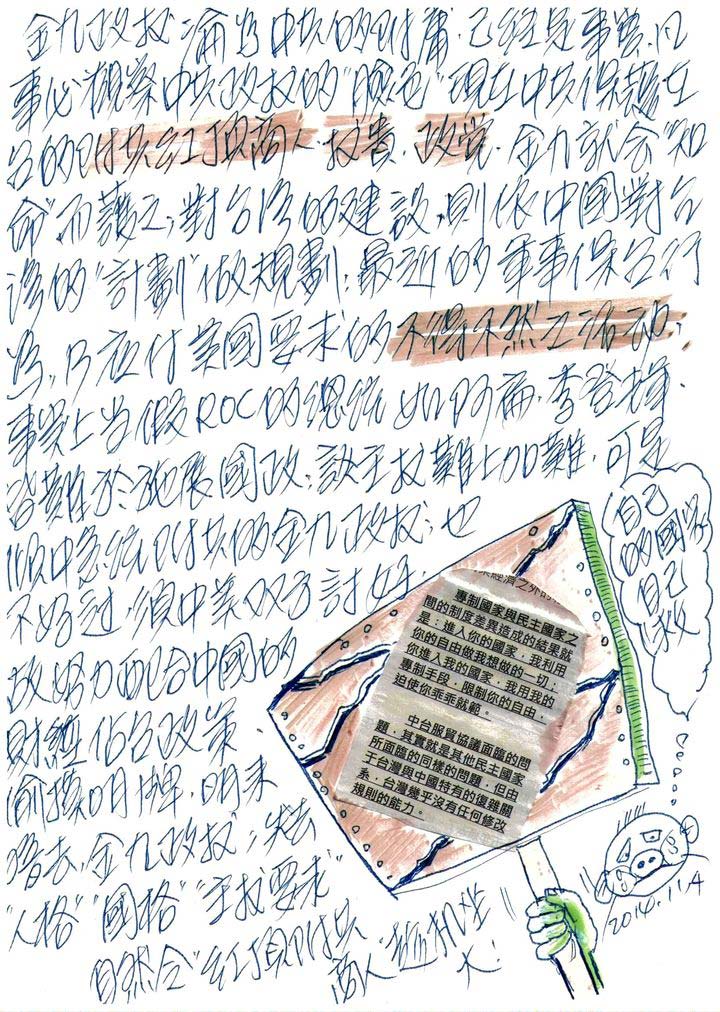 金九政权,淪為中共的附庸,已經是事实,凡
事必"視察中共政权的"臉色"現在中共保護在
台的附共紅頂商人.权貴.政党.金九就会"知
命"而護之,對台湾的建設,則依中國對台
湾的"計劃"做規劃.最近的軍事保台行
為,乃应付美國要求的不得不然之活动;
事实上当做ROC的總統如阿扁.李登揮.
皆難於施展國政,談主权難上加難,可是
傾中急統附共的金九政权,也
不好过,須中美双方討好,
故努力配合中國的
財經佔台政策.
偷摸明牌,明来
暗去,金九政权,失去
"人格""國格""主权要求"
自然会"紅頂附共
商人"趁机坐
大!
自己
的國家
自己
救
業經濟之外的
專制國家與民主國家之
間的制度差異造成的結果就
是:進入你的國家,我利用
你的自由做我想做的一切;
你進入我的國家,我用我的
專制手段,限制你的自由,
迫使你乖乖就範。
中台服貿協議面臨的問
題,其實就是其他民主國家
所面臨的同樣的問題,但由
于台灣與中國特有的復雜關
系,台灣幾乎沒有任何修改
規則的能力。
2014.11.4